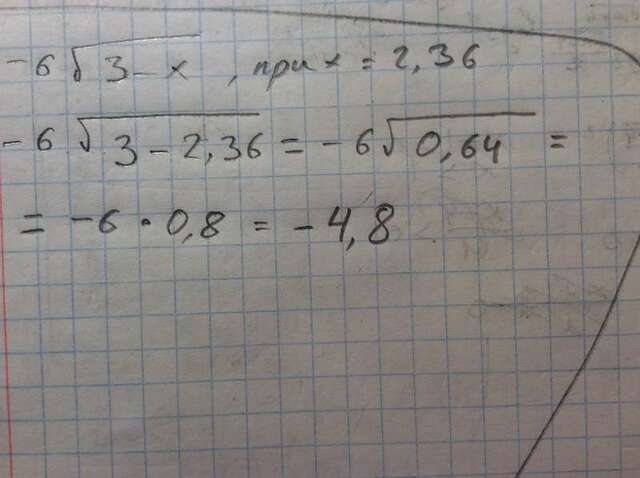 -6√3-x, при x = 2,36
-6√3-2,36 = -6√0,64 =
= -6·0,8 = -4,8